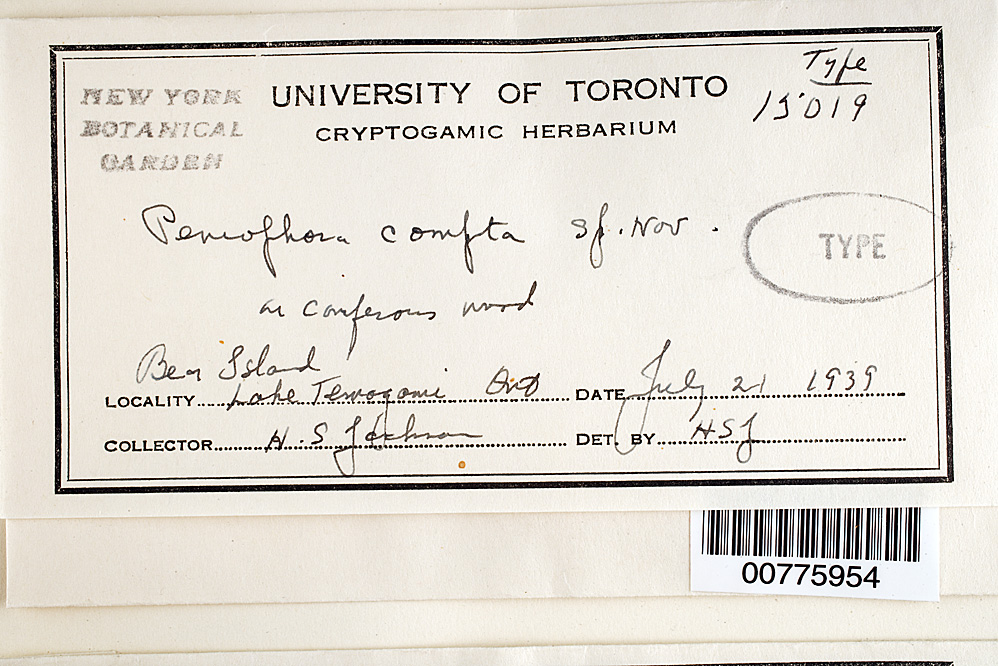 Type
15019
NEW YORK
BOTANICAL
GARDEN
UNIVERSITY OF TORONTO
CRYPTOGAMIC HERBARIUM
Peniophora compta sp. Nov.
TYPE
on coniferous wood
Bear Island
LOCALITY Lake Temagami Ont DATE July 21 1939
COLLECTOR H. S Jackson DET. BY HSJ
00775954